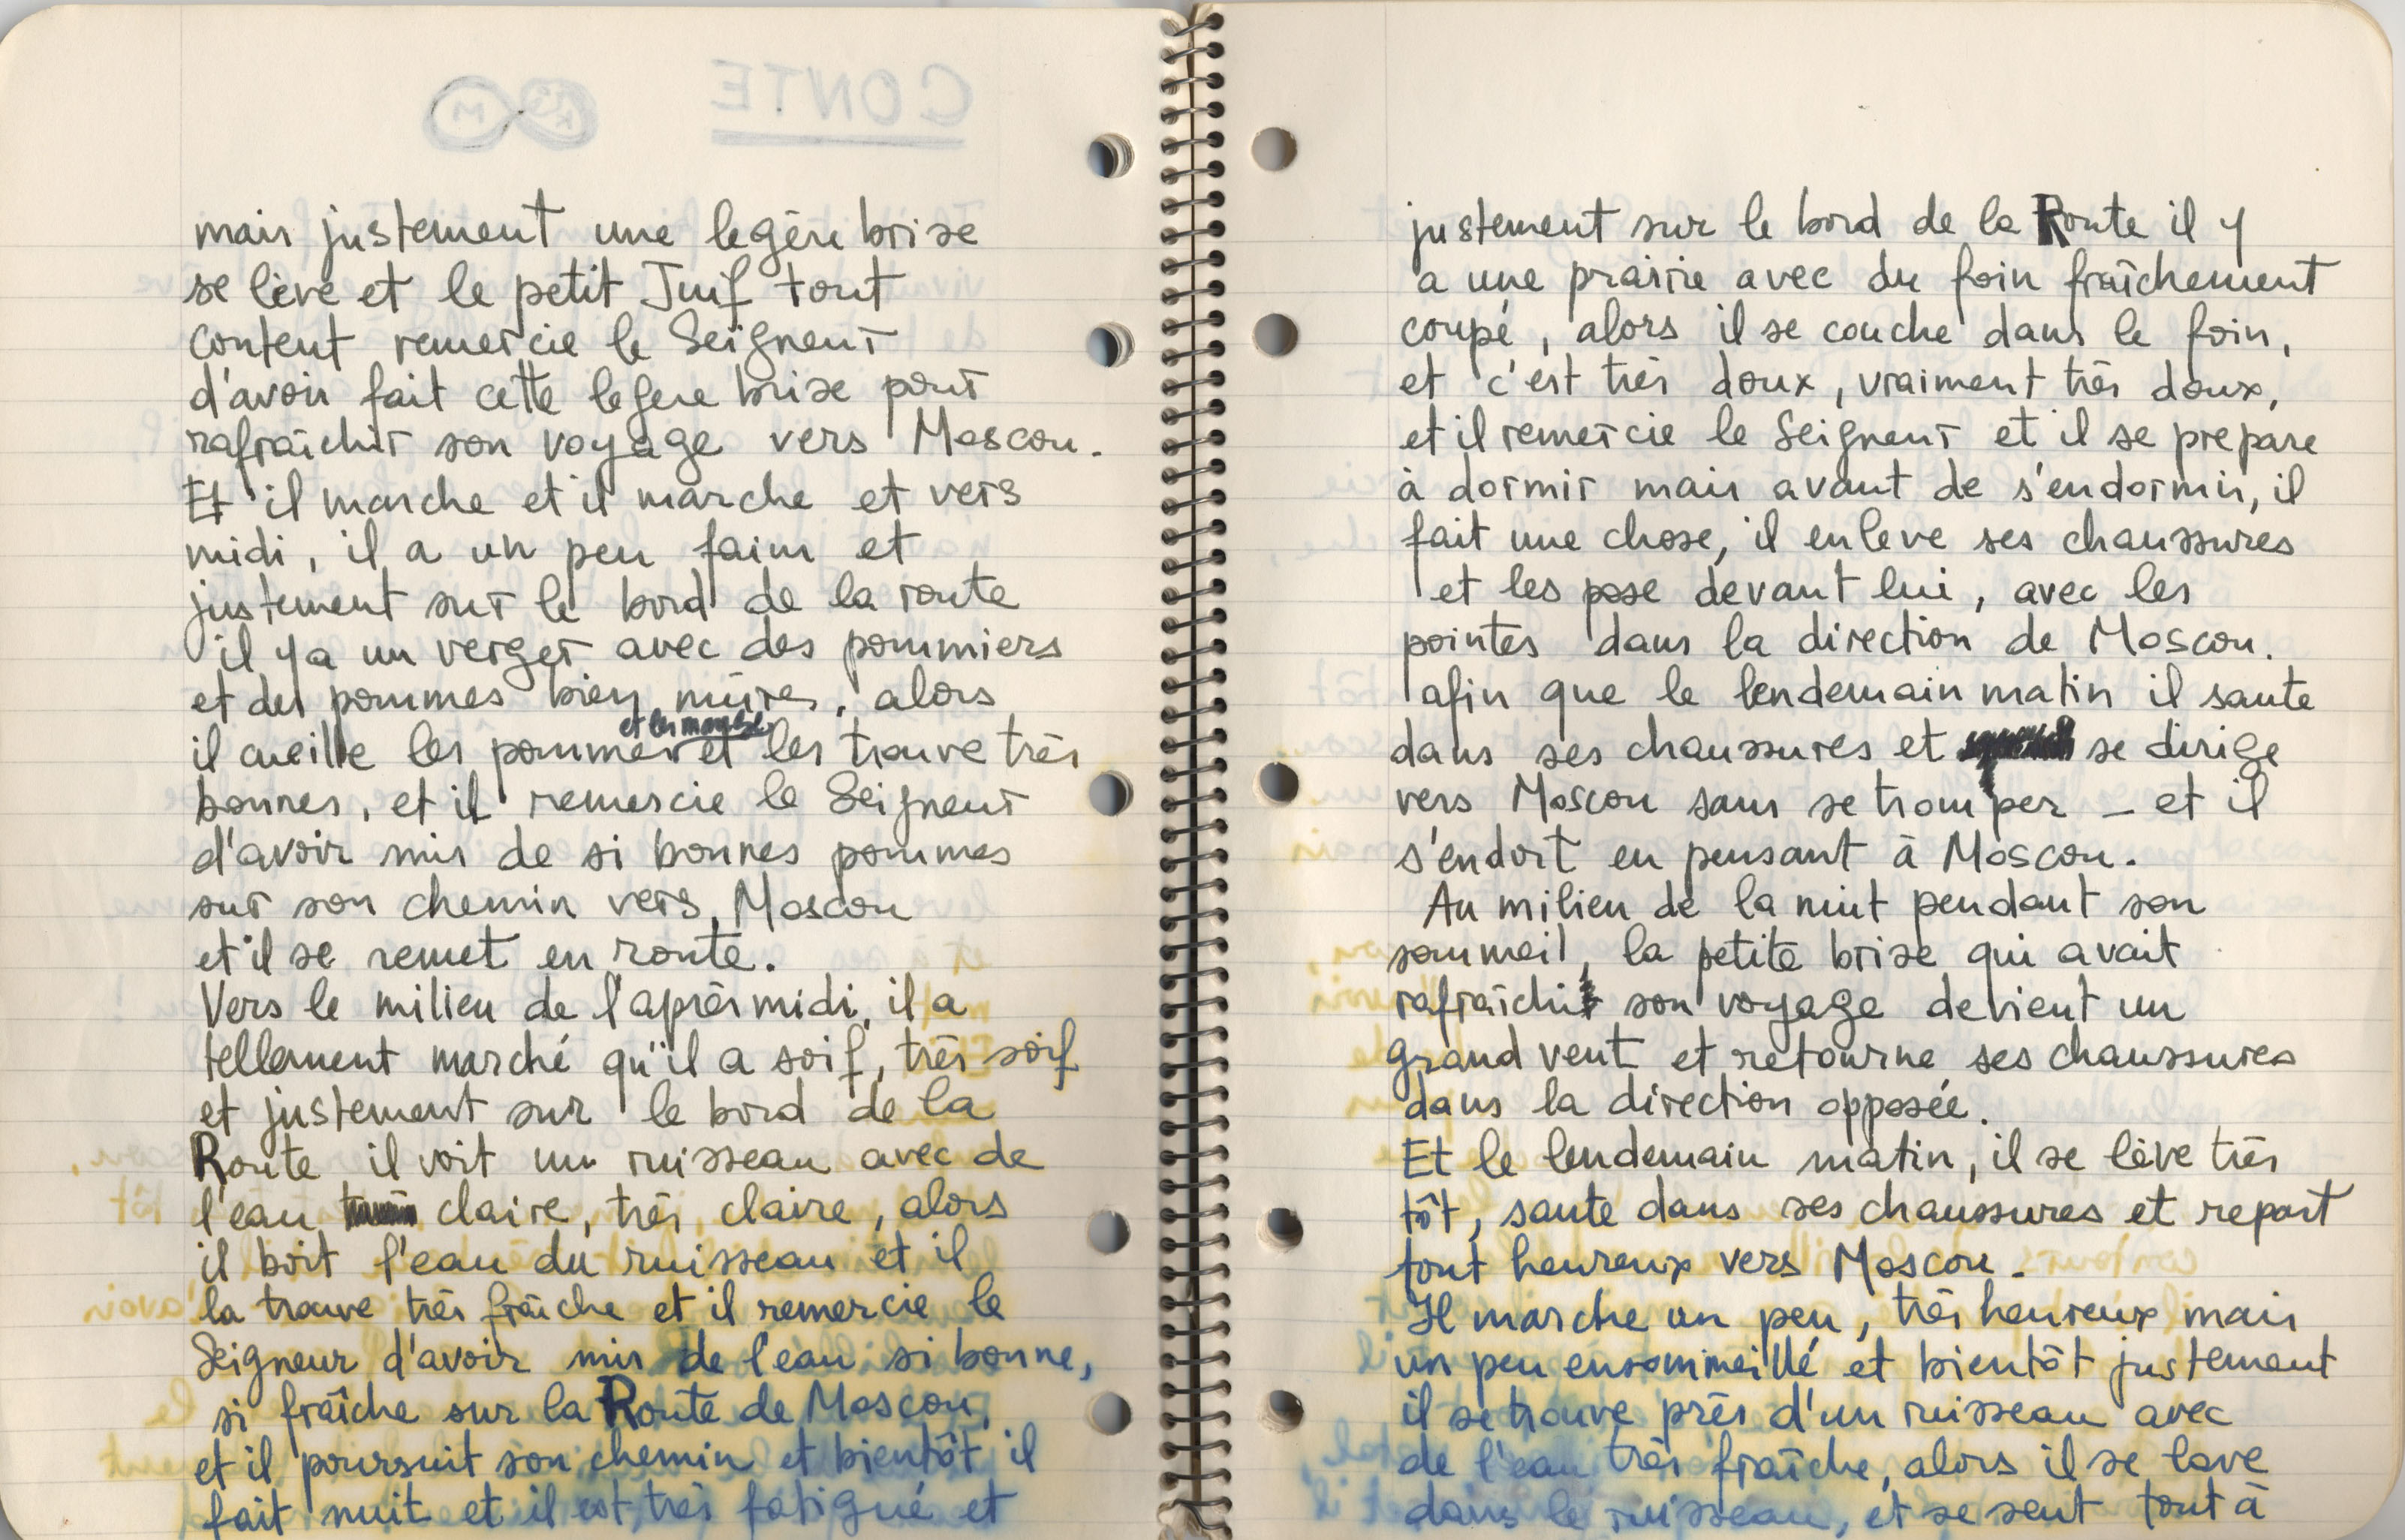 CONTE
mais justement une legère brise
se lève et le petit Juif tout
content remercie le Seigneur
d'avoir fait cette legere brise pour
rafraîchir son voyage vers Moscou.
Et il marche et il marche et vers
midi, il a un peu faim et
justement sur le bord de la route
il y a un verger avec des pommiers
et des pommes bien mûres, alors
et les mange
il cueille les pommes et les trouve très
bonnes, et il remercie le Seigneur
d'avoir mis de si bonnes pommes
sur son chemin vers Moscou
et il se remet en route.
Vers le milieu de l'après midi, il a
tellement marché qu'il a soif, très soif
et justement sur le bord de la
Route il voit un ruisseau avec de
l'eau claire, très claire, alors
il boit l'eau du ruisseau et il
la trouve très fraîche et il remercie le
Seigneur d'avoir mis de l'eau si bonne,
si fraîche sur la Route de Moscou,
et il poursuit son chemin et bientôt il
fait nuit et il est très fatigué et
justement sur le bord de la Route il y
a une prairie avec du foin fraîchement
coupé, alors il se couche dans le foin,
et c'est très doux, vraiment très doux,
et il remercie le Seigneur et il se prepare
à dormir mais avant de s'endormir, il
fait une chose, il enleve ses chaussures
et les pose devant lui, avec les
pointes dans la direction de Moscou.
afin que le lendemain matin il saute
dans ses chaussures et se dirige
vers Moscou sans se tromper – et il
s'endort en pensant à Moscou.
Au milieu de la nuit pendant son
sommeil, la petite brise qui avait
rafraîchi son voyage devient un
grand vent et retourne ses chaussures
dans la direction opposée.
Et le lendemain matin, il se lève très
tôt, saute dans ses chaussures et repart
tout heureux vers Moscou.
Il marche un peu, très heureux mais
un peu ensommeillé et bientôt justement
il se trouve près d'un ruisseau avec
de l'eau très fraîche, alors il se lave
dans le ruisseau, et se sent tout à